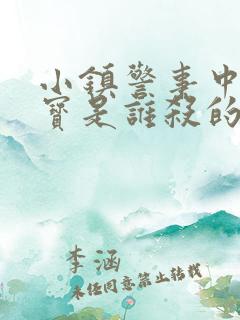 小鎮警事中
寶是誰殺的
李涵
未经同意禁止转载